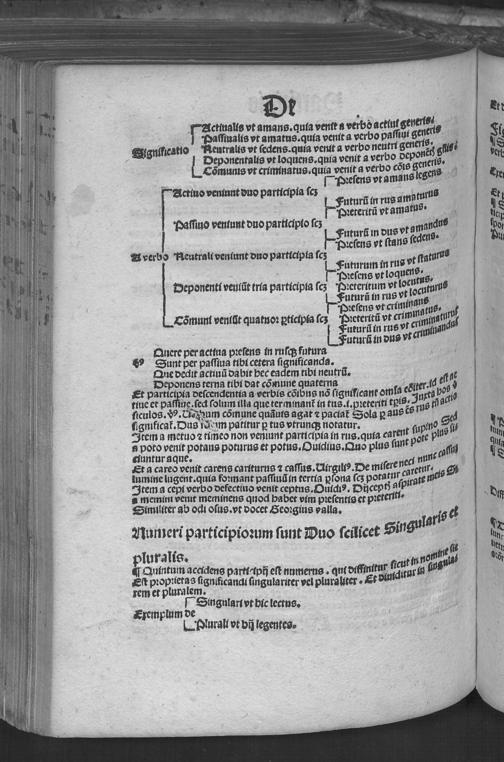 De
Actiualis vt amans. quia venit a verbo actiui generis.
Passiualis vt amatus. quia venit a verbo passiui generis
Significatio Neutralis vt sedens. quia venit a verbo neutri generis.
Deponentalis vt loquens. quia venit a verbo deponētis gn̄is.
Cōmunis vt criminatus. quia venit a verbo cōis generis.
Presens vt amans legens
Actiuo veniunt duo participia scꝫ
Futurū in rus amaturus
Preteritū vt amatus.
Passiuo veniunt duo participio scꝫ
Futurū in dus vt amandus
Presens vt stans sedens.
A verbo Neutrali veniunt duo participia scꝫ
Futurum in rus vt staturus
Presens vt loquens.
Deponenti veniūt tria participia scꝫ
Preteritum vt locutus.
Futurū in rus vt locuturus
Presens vt criminans
Cōmuni veniūt quatuor ꝑticipia scꝫ
Preteritū vt criminatus.
Futurū in rus vt criminaturus
Futurū in dus vt criminandus
Quere per actiua presens in rusqꝫ futura
Sunt per passiua tibi cetera significanda.
Que dedit actiuū dabit hec eadem tibi neutrū.
Deponens terna tibi dat cōmune quaterna
Et participia descendentia a verbis cōibus nō significant om̄ia cōiter. id est
tiue et passiue. sed solum illa que terminant̄ in tus. i. preteriti tꝑis. Iuxta hos
siculos. cōmune quāuis agat ⁊ paciat̄ Sola ꝑ aus ēs rus in actio
significat̄. Dus patitur ꝑ tus vtrunqꝫ notatur.
Item a metuo ⁊ timeo non veniunt participia in rus. quia carent supino Sed
a poto venit potans poturus et potus. Ouidius. Quo plus sunt pote plus
ciuntur aque.
Et a careo venit carens cariturus ⁊ cassus. Uirgiliꝰ. De misere neci nunc cassuꝫ
lumine lugent. quia formant passiuū in tertia ꝑsona scꝫ potatur caretur.
Item a cepi verbo defectiuo venit ceptus. Ouidiꝰ. Dij ceptꝭ aspirate meis Si
a memini venit meminens quod habet vim presentis et preteriti.
Similiter ab odi osus. vt docet Georgius valla.
Numeri participiorum sunt Duo scilicet Singularis et
pluralis.
¶ Quintum accidens participij est numerus. qui diffinitur sicut in nomine sic
Est proprietas significandi singulariter vel pluraliter. Et diuiditur in singula
rem et pluralem.
Singulari vt hic lectus.
Exemplum de
Plurali vt hij legentes.